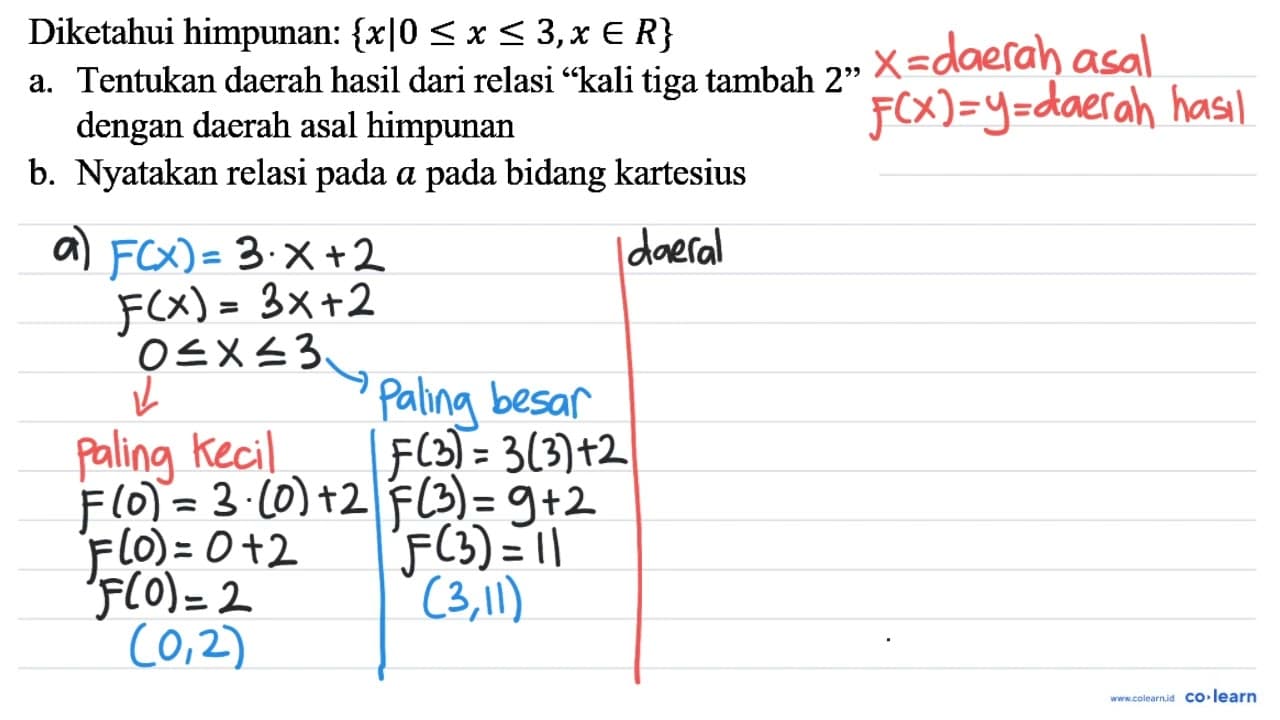 Diketahui himpunan: {x|0 ≤ x ≤ 3, x ∈ R}
a. Tentukan daerah hasil dari relasi “kali tiga tambah 2”
dengan daerah asal himpunan
b. Nyatakan relasi pada a pada bidang kartesius
x = daerah asal
F(x) = y = daerah hasil
a) F(x) = 3 · x + 2
F(x) = 3x + 2
0 ≤ x ≤ 3
Paling kecil
F(0) = 3 · (0) + 2
F(0) = 0 + 2
F(0) = 2
(0,2)
Paling besar
F(3) = 3(3) + 2
F(3) = 9 + 2
F(3) = 11
(3,11)
daeral
www.colearn.id co·learn